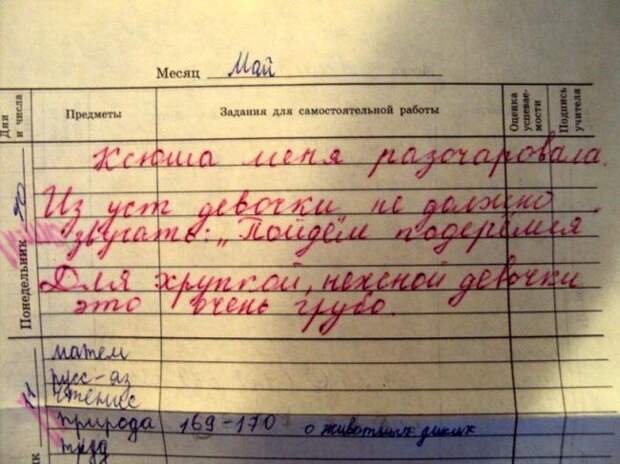 Месяц Май
Дни и числа
Предметы
Задания для самостоятельной работы
Оценка успевае- мости
Подпись учителя
Понедельник
Ксюша меня разочаровала.
Из уст девочки не должно
звучать: „Пойдём подерёмся
Для хрупкой, нежной девочки
это очень грубо.
11
матем
русс-яз
чтение
природа 169-170 о животных диких
труд
к